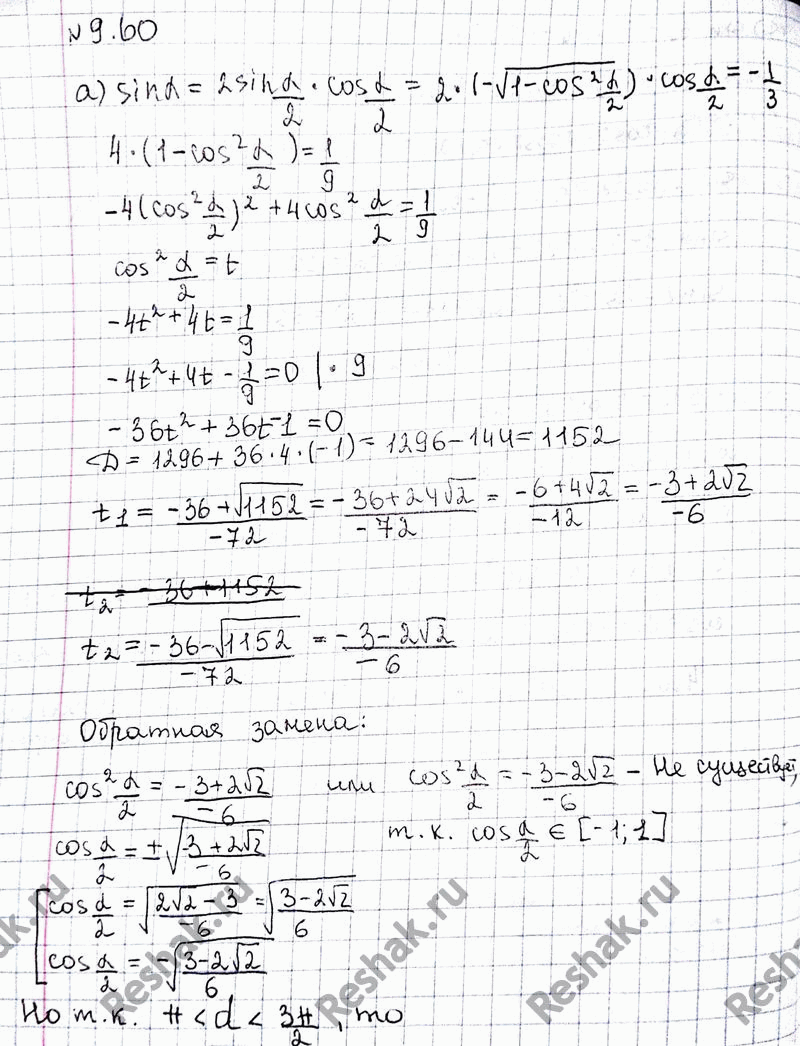 №9.60
а) sinα = 2sin α/2 · cos α/2 = 2·(-√(1-cos² α/2)) · cos α/2 = -1/3
4·(1-cos² α/2) = 1/9
-4(cos² α/2)² + 4cos² α/2 = 1/9
cos² α/2 = t
-4t² + 4t = 1/9
-4t² + 4t - 1/9 = 0 | · 9
-36t² + 36t - 1 = 0
D = 1296 + 36·4·(-1) = 1296 - 144 = 1152
t₁ = (-36+√1152)/(-72) = (-36+24√2)/(-72) = (-6+4√2)/(-12) = (-3+2√2)/(-6)
t₂ = (-36+1152)
t₂ = (-36-√1152)/(-72) = (-3-2√2)/(-6)
Обратная замена:
cos² α/2 = (-3+2√2)/(-6) или cos² α/2 = (-3-2√2)/(-6) - Не существует,
т.к. cos α/2 ∈ [-1;1]
cos α/2 = ±√((-3+2√2)/(-6))
[cos α/2 = √((2√2-3)/6) = √((3-2√2)/6)
cos α/2 = -√((3-2√2)/6)
Но т.к. π < α < 3π/2, то
Reshak.ru
Reshak.ru
Reshak.ru
Reshak.ru